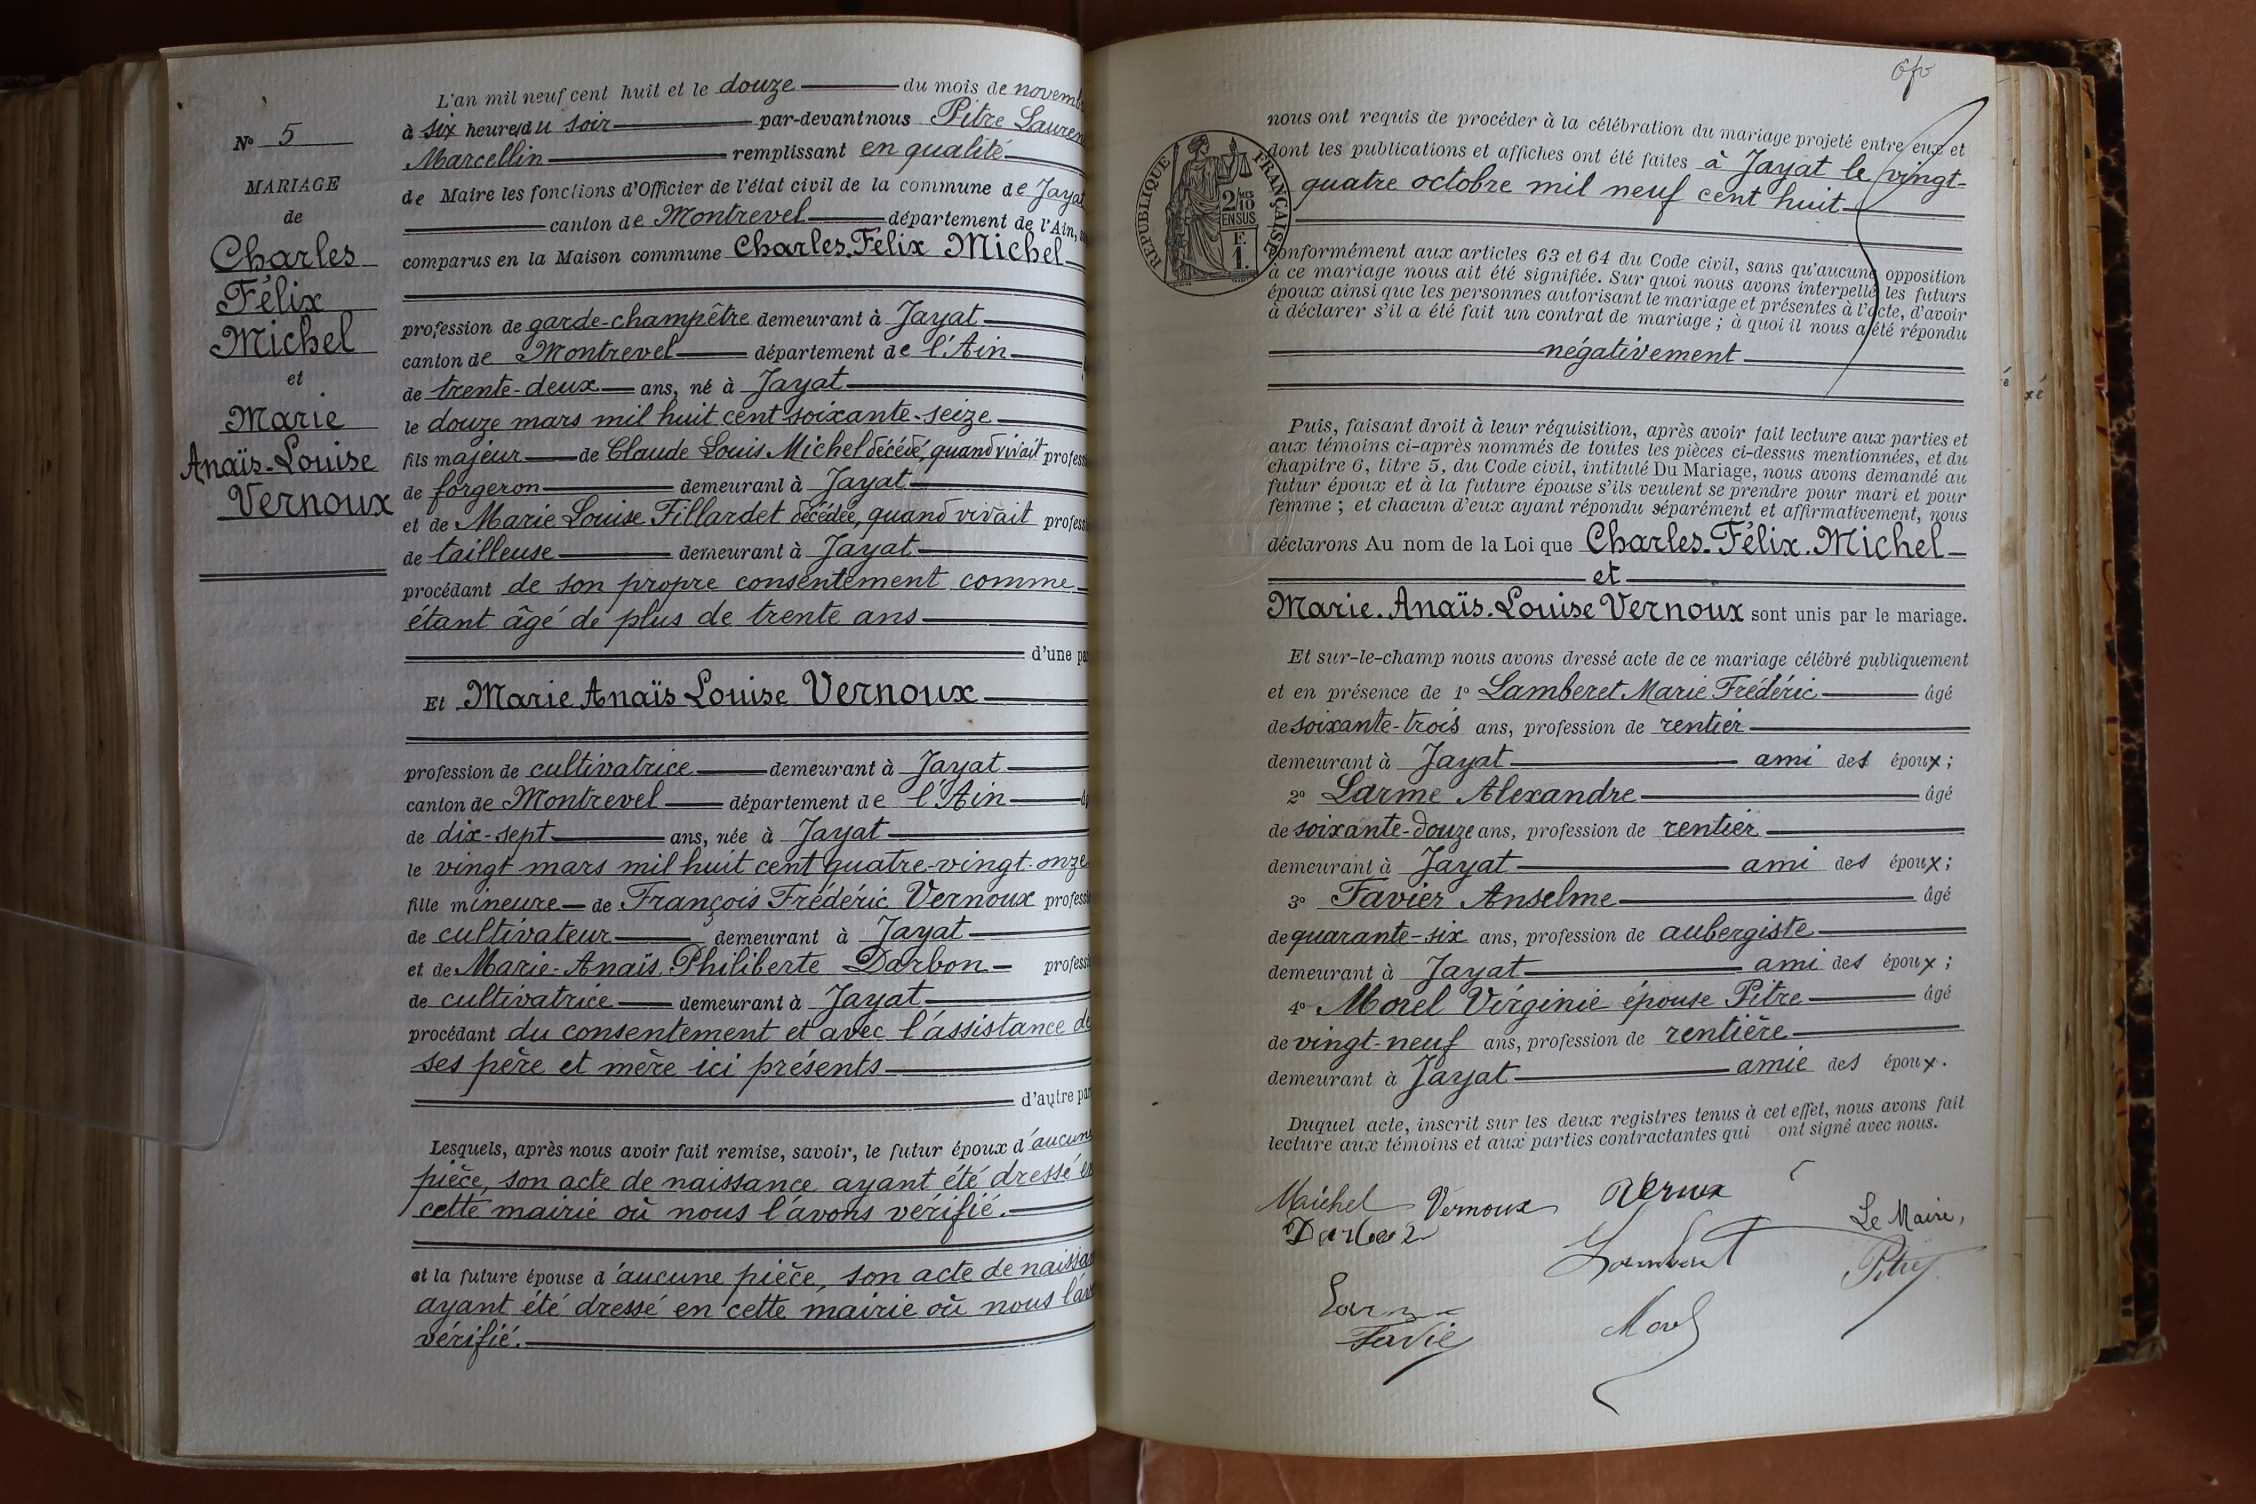 N° 5
MARIAGE
de
Charles
Félix
Michel
et
Marie
Anaïs-Louise
Vernoux
L'an mil neuf cent huit et le douze du mois de novemb
à six heures du soir par-devant nous Pitre Lauren
Marcellin remplissant en qualité
de Maire les fonctions d'Officier de l'état civil de la commune de Jayat
canton de Montrevel département de l'Ain,
comparus en la Maison commune Charles Félix Michel
profession de garde-champêtre demeurant à Jayat
canton de Montrevel département de l'Ain
de trente-deux ans, né à Jayat
le douze mars mil huit cent soixante-seize
fils majeur de Claude Louis Michel décédé, quand vivait profess
de forgeron demeurant à Jayat
et de Marie Louise Fillardet décédée, quand vivait profess
de tailleuse demeurant à Jayat
procédant de son propre consentement comme
étant âgé de plus de trente ans
d'une pa
Et Marie Anaïs Louise Vernoux
profession de cultivatrice demeurant à Jayat
canton de Montrevel département de l'Ain
de dix-sept ans, née à Jayat
le vingt mars mil huit cent quatre-vingt-onze
fille mineure de François Frédéric Vernoux profess
de cultivateur demeurant à Jayat
et de Marie-Anaïs Philiberte Darbon profess
de cultivatrice demeurant à Jayat
procédant du consentement et avec l'assistance de
ses père et mère ici présents
d'autre par
Lesquels, après nous avoir fait remise, savoir, le futur époux d'aucune
pièce, son acte de naissance ayant été dressé en
cette mairie où nous l'avons vérifié.
et la future épouse d'aucune pièce, son acte de naissan
ayant été dressé en cette mairie où nous l'av
vérifié.
RÉPUBLIQUE FRANÇAISE
2/10
EN SUS
F.
1.
nous ont requis de procéder à la célébration du mariage projeté entre eux et
dont les publications et affiches ont été faites à Jayat le vingt-
quatre octobre mil neuf cent huit
conformément aux articles 63 et 64 du Code civil, sans qu'aucune opposition
à ce mariage nous ait été signifiée. Sur quoi nous avons interpellé les futurs
époux ainsi que les personnes autorisant le mariage et présentes à l'acte, d'avoir
à déclarer s'il a été fait un contrat de mariage ; à quoi il nous a été répondu
négativement
Puis, faisant droit à leur réquisition, après avoir fait lecture aux parties et
aux témoins ci-après nommés de toutes les pièces ci-dessus mentionnées, et du
chapitre 6, titre 5, du Code civil, intitulé Du Mariage, nous avons demandé au
futur époux et à la future épouse s'ils veulent se prendre pour mari et pour
femme ; et chacun d'eux ayant répondu séparément et affirmativement, nous
déclarons Au nom de la Loi que Charles-Félix.Michel
et
Marie.Anaïs.Louise Vernoux sont unis par le mariage.
Et sur-le-champ nous avons dressé acte de ce mariage célébré publiquement
et en présence de 1° Lamberet Marie Frédéric âgé
de soixante-trois ans, profession de rentier
demeurant à Jayat ami des époux ;
2° Larme Alexandre âgé
de soixante-douze ans, profession de rentier
demeurant à Jayat ami des époux ;
3° Favier Anselme âgé
de quarante-six ans, profession de aubergiste
demeurant à Jayat ami des époux ;
4° Morel Virginie épouse Pitre âgé
de vingt-neuf ans, profession de rentière
demeurant à Jayat amie des époux.
Duquel acte, inscrit sur les deux registres tenus à cet effet, nous avons fait
lecture aux témoins et aux parties contractantes qui ont signé avec nous.
Michel Vernoux
Le Maire,
Pitre
Morel